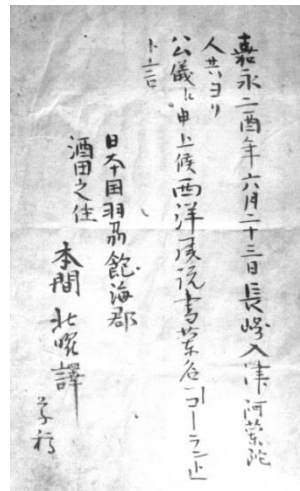 嘉永二酉年六月二十三日長崎入津阿蘭陀
人共ヨリ
公儀ヱ申上候西洋風説書蘭名コーラント
ト云
日本国羽州飽海郡
酒田之住
本間北曜譯
草稿